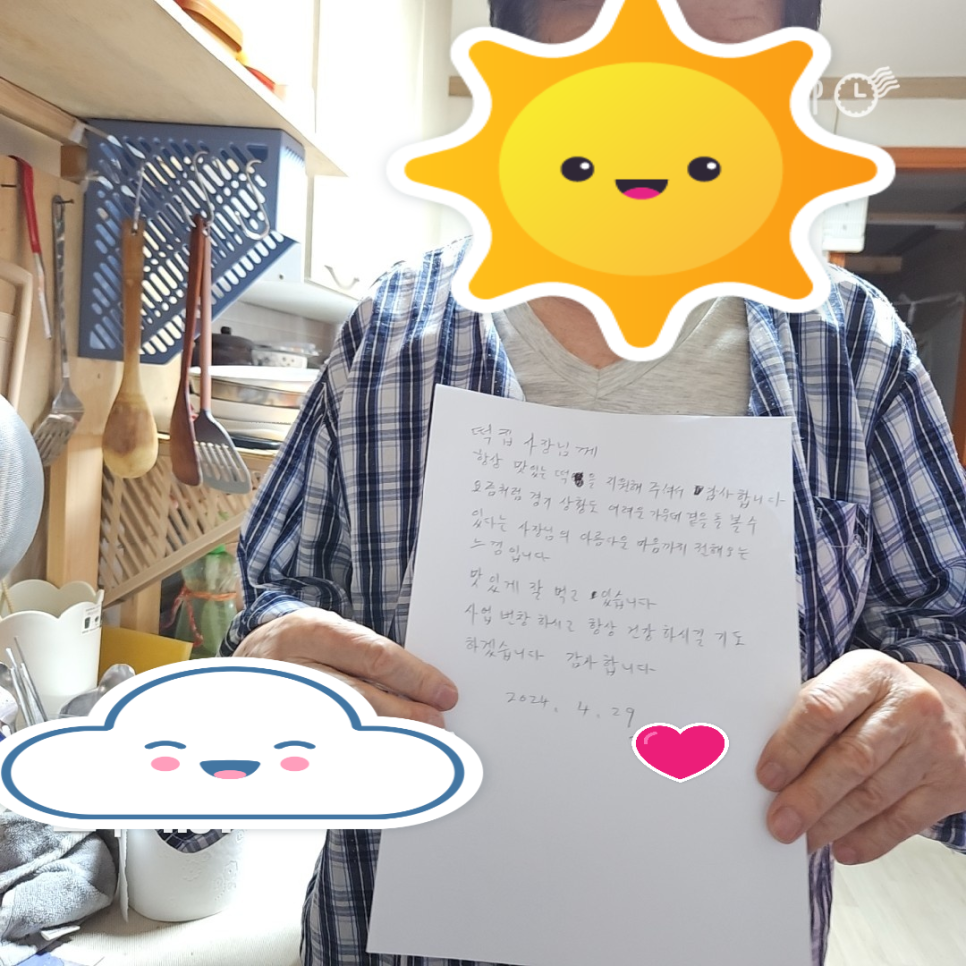 떡집 사장님께
항상 맛있는 떡을 지원해 주셔서 감사합니다
요즘처럼 경기 상황도 어려운 가운데 곁을 돌볼 수
있다는 사장님의 아름다운 마음까지 전해오는
느낌입니다
맛있게 잘 먹고 있습니다
사업 번창 하시고 항상 건강 하시길 기도
하겠습니다 감사합니다
2024. 4. 29